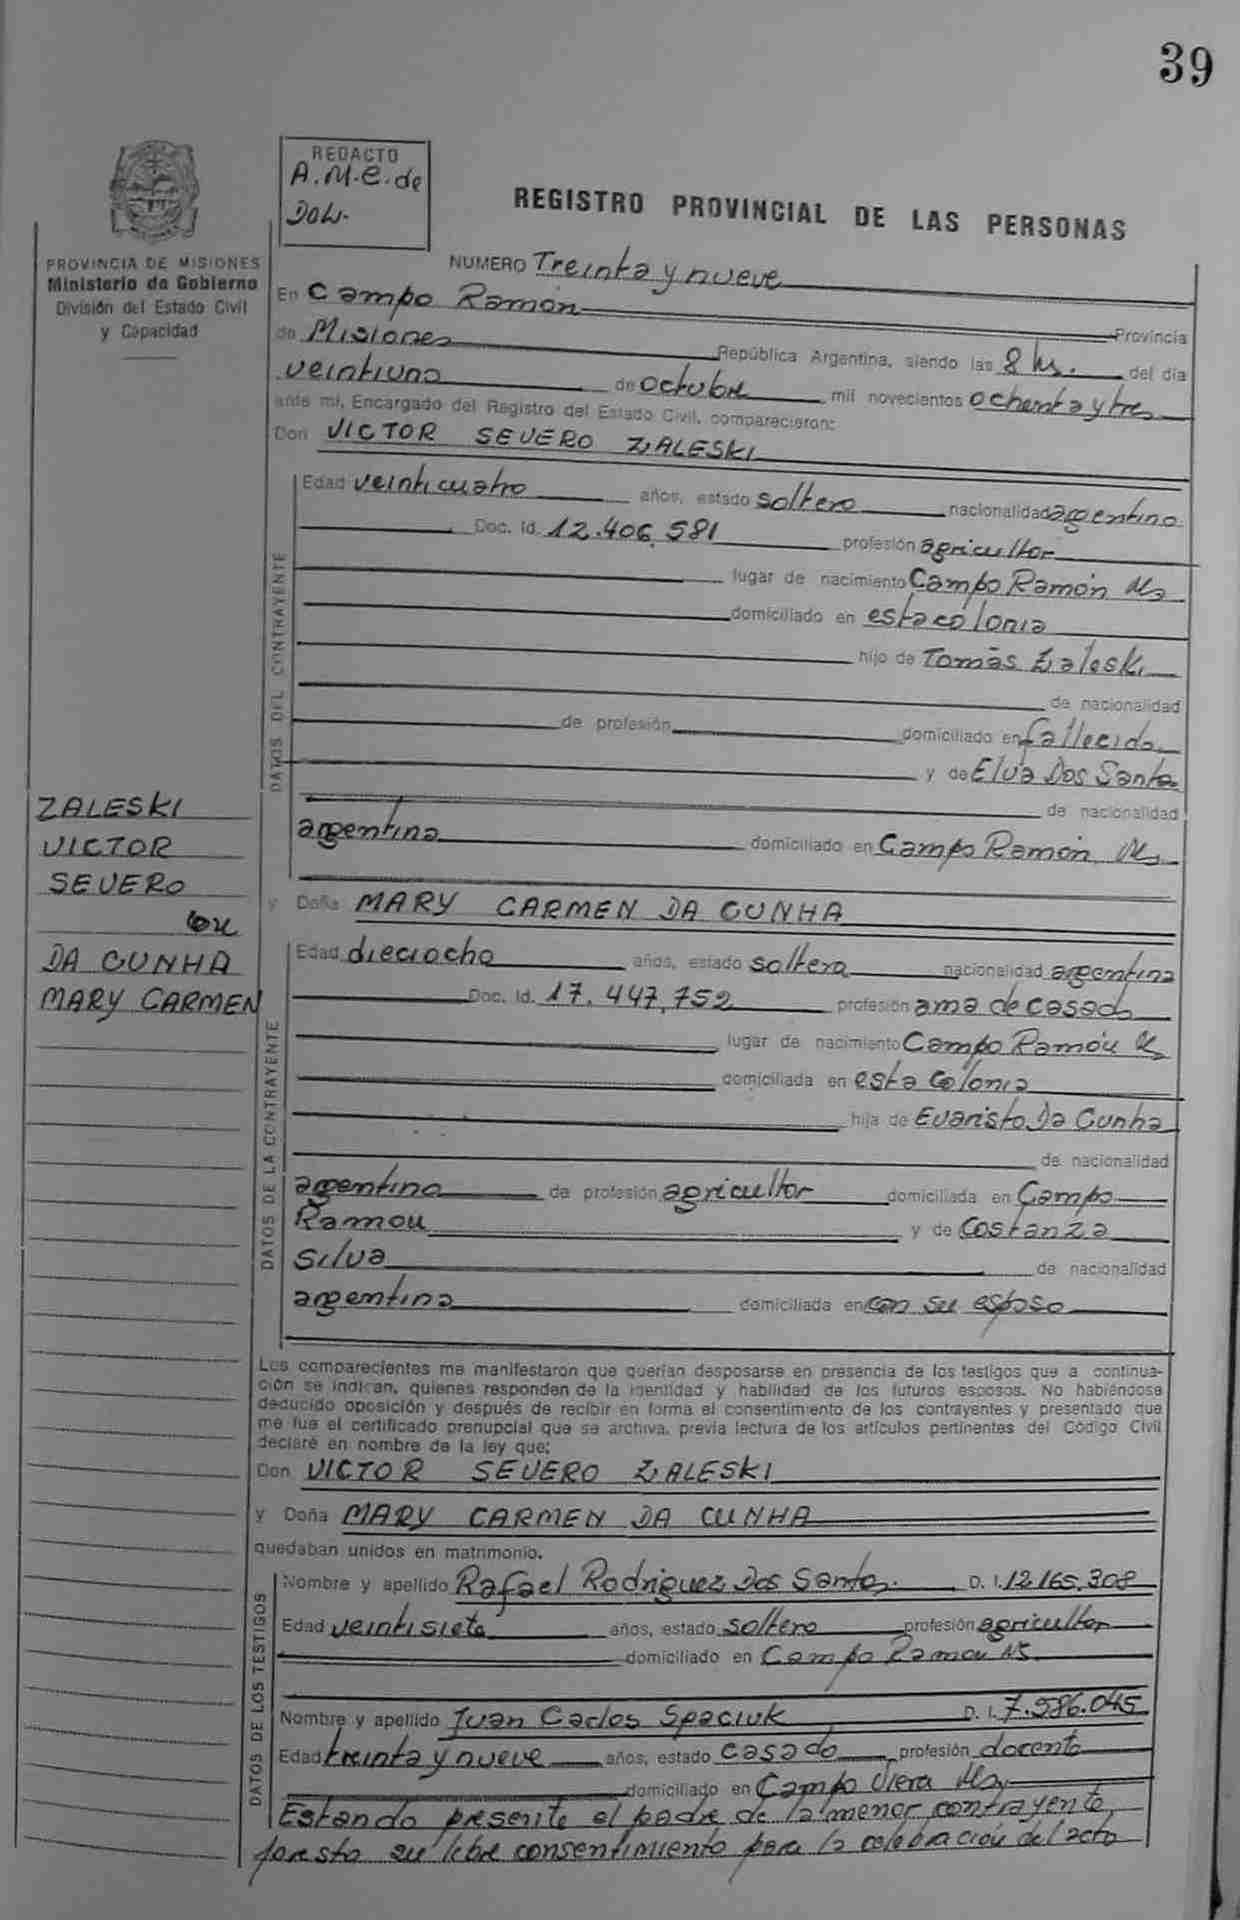 39
REDACTO
A.M.C. de
DOW.
REGISTRO PROVINCIAL DE LAS PERSONAS
PROVINCIA DE MISIONES
Ministerio de Gobierno
División del Estado Civil
y Capacidad
NUMERO Treinta y nueve
En Campo Ramón Provincia
de Misiones República Argentina, siendo las 8 hs. del día
veintiuno de octubre mil novecientos ochenta y tres
ante mí, Encargado del Registro del Estado Civil, comparecieron:
Don VICTOR SEVERO ZALESKI
DATOS DEL CONTRAYENTE
Edad veinticuatro años, estado soltero nacionalidad argentino
Doc. Id. 12.406.581 profesión agricultor
lugar de nacimiento Campo Ramón Ms
domiciliado en esta colonia
hijo de Tomás Zaleski
de nacionalidad
de profesión domiciliado en fallecido
y de Elva Dos Santos
de nacionalidad
argentina domiciliado en Campo Ramón Ms.
ZALESKI
VICTOR
SEVERO
con
DA CUNHA
MARY CARMEN
y Doña MARY CARMEN DA CUNHA
DATOS DE LA CONTRAYENTE
Edad dieciocho años, estado soltera nacionalidad argentina
Doc. Id. 17.447.752 profesión ama de casa
lugar de nacimiento Campo Ramón
domiciliada en esta Colonia
hija de Evaristo Da Cunha
de nacionalidad
argentina de profesión agricultor domiciliada en Campo
Ramon y de Costanza
Silva de nacionalidad
argentina domiciliada en con su esposo
Los comparecientes me manifestaron que querían desposarse en presencia de los testigos que a continua-
ción se indican, quienes responden de la identidad y habilidad de los futuros esposos. No habiéndose
deducido oposición y después de recibir en forma el consentimiento de los contrayentes y presentado que
me fue el certificado prenupcial que se archiva, previa lectura de los artículos pertinentes del Código Civil
declaré en nombre de la ley que;
Don VICTOR SEVERO ZALESKI
y Doña MARY CARMEN DA CUNHA
quedaban unidos en matrimonio.
DATOS DE LOS TESTIGOS
Nombre y apellido Rafael Rodriguez Dos Santos D. I. 12.165.308
Edad veintisiete años, estado soltero profesión agricultor
domiciliado en Campo Ramon Ms.
Nombre y apellido Juan Carlos Spaciuk D. I. 7.586.045
Edad treinta y nueve años, estado casado profesión docente
domiciliado en Campo Viera Ms
Estando presente el padre de la menor contrayente,
presta su libre consentimiento para la celebración del acto